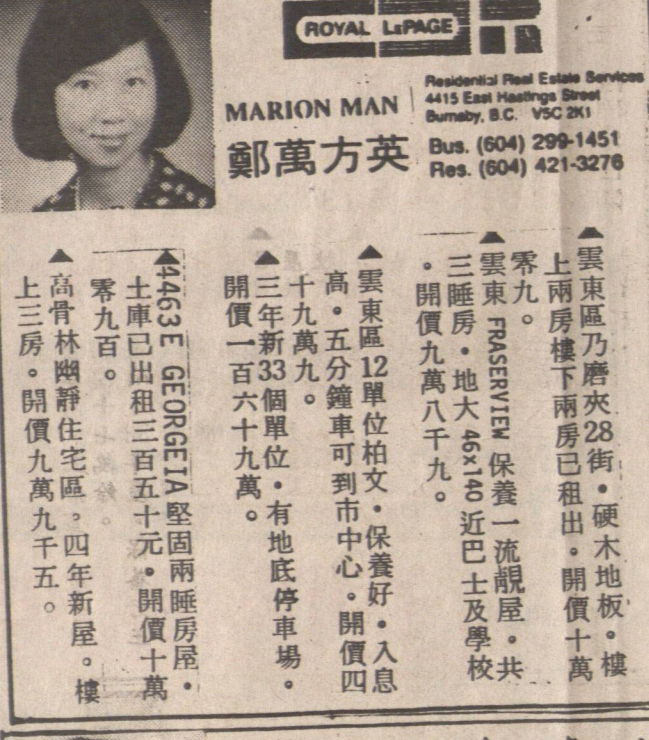 ROYAL LEPAGE
MARION MAN
鄭萬方英
Residential Real Estate Services
4415 East Hastings Street
Burnaby, B.C. V5C 2K1
Bus. (604) 299-1451
Res. (604) 421-3276
▲雲東區乃磨夾28街。硬木地板。樓
上兩房樓下兩房已租出。開價十萬
零九。
▲雲東 FRASERVIEW 保養一流靚屋。共
三睡房。地大 46x140 近巴士及學校
。開價九萬八千九。
▲雲東區12單位柏文。保養好。入息
高。五分鐘車可到市中心。開價四
十九萬九。
▲三年新33個單位。有地底停車場。
開價一百六十九萬。
▲4463E GEORGEIA 堅固兩睡房屋。
土庫已出租三百五十元。開價十萬
零九百。
▲高骨林幽靜住宅區。四年新屋。樓
上三房。開價九萬九千五。